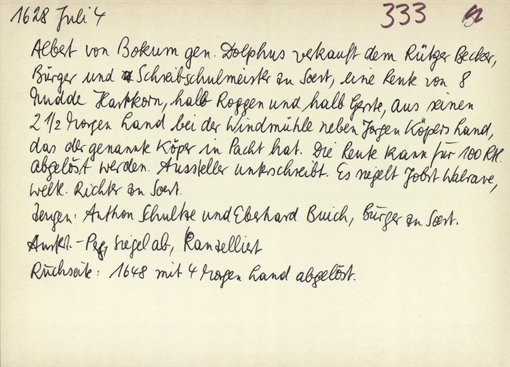 1628 Juli 4 333
Albert von Bokum gen. Dolphus verkauft dem Rütger Becker,
Bürger und Schreibschulmeister zu Soest, eine Rente von 8
Mudde Hartkorn, halb Roggen und halb Gerste, aus seinen
2 1/2 Morgen Land bei der Windmühle neben Jorgen Köpers Land,
das der genannte Köper in Pacht hat. Die Rente kann für 100 Rtl.
abgelöst werden. Aussteller unterschreibt. Es siegelt Jobst Walrave,
weltl. Richter zu Soest.
Zeugen: Anthon Schultze und Eberhard Buich, Bürger zu Soest.
Ausf. - Perg, Siegel ab, Kanzelliert
Rückseite: 1648 mit 4 Morgen Land abgelöst.